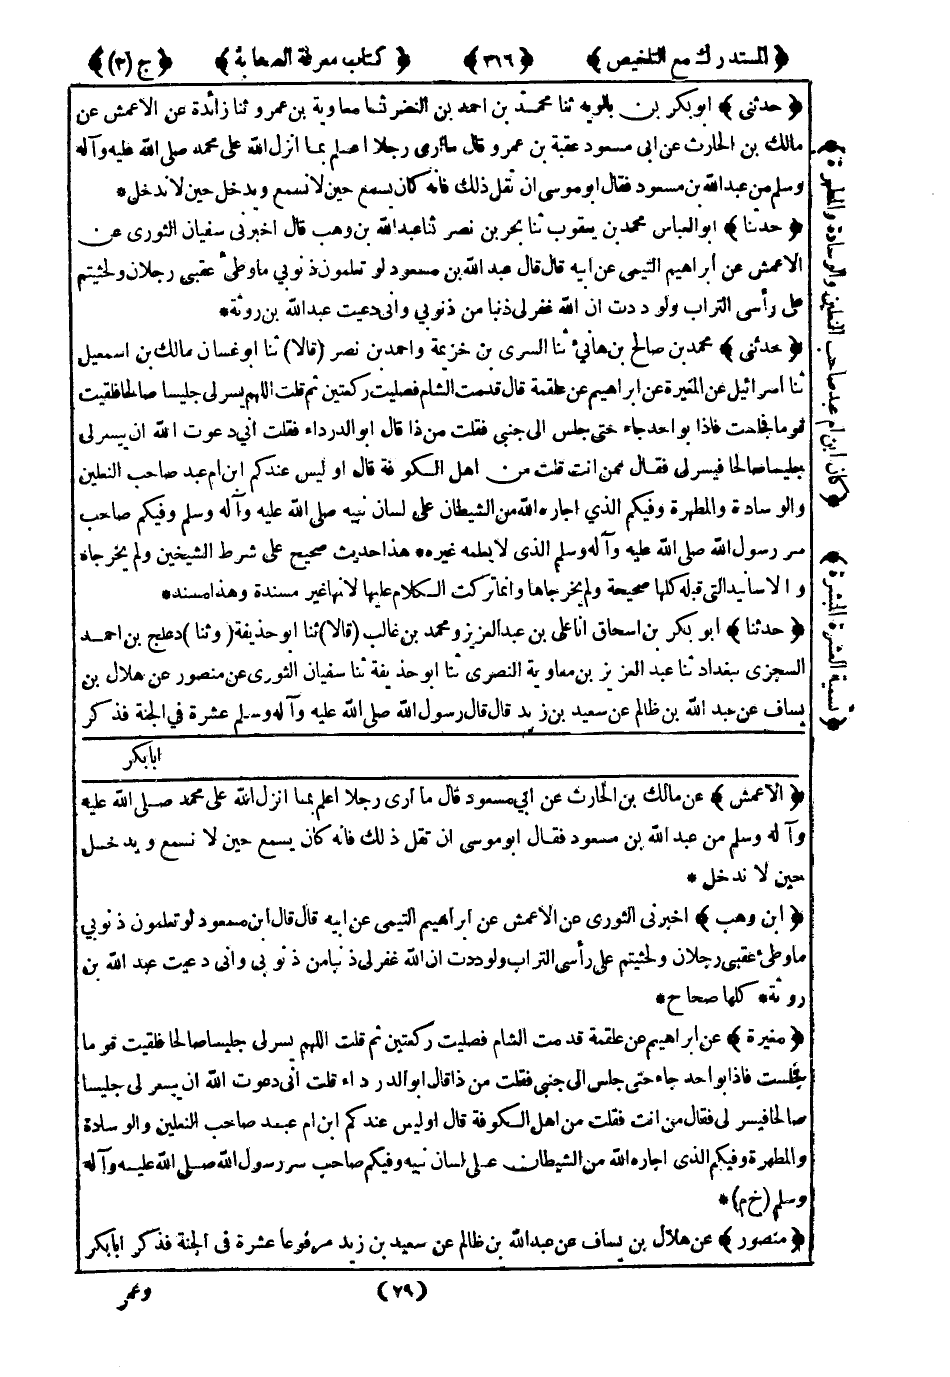 ﴿ المستدرك مع التلخيص ﴾ ﴿ ٣١٦ ﴾ ﴿ كتاب معرفة الصحابة ﴾ ﴿ ج (٣) ﴾
﴿ حدثنى ﴾ ابوبكر بن بالويه ثنا محمد بن احمد بن النضر ثنا معاوية بن عمرو ثنا زائدة عن الاعمش عن
مالك بن الحارث عن ابى مسعود عقبة بن عمرو قال ماأرى رجلا اعلم بما انزل الله على محمد صلى الله عليه وآله
وسلم من عبدالله بن مسعود فقال ابوموسى ان تقل ذلك فانه كان يسمع حين لا نسمع ويدخل حين لا ندخل *
﴿ حدثنا ﴾ ابوالعباس محمد بن يعقوب ثنا بحر بن نصر ثنا عبدالله بن وهب قال اخبرنى سفيان الثورى عن
الاعمش عن أبراهيم التيمى عن ابيه قال قال عبد الله بن مسعود لو تعلمون ذنوبي ماوطئ عقبي رجلان ولحثيتم
على رأسى التراب ولو ددت ان الله غفر لى ذنبا من ذنوبي وانى دعيت عبدالله بن روثة *
﴿ حدثنى ﴾ محمد بن صالح بن هانئ ثنا السرى بن خزيمة واحمد بن نصر (قالا) ثنا ابو غسان مالك بن اسمعيل
ثنا اسرائيل عن المغيرة عن ابراهيم عن علقمة قال قدمت الشام فصليت ركعتين ثم قلت اللهم يسر لى جليسا صالحا فلقيت
قوما فجلست فاذا بو احد جاء حتى جلس الى جنبي فقلت من ذا قال ابو الدرداء فقلت اني دعوت الله ان ييسر لى
جليسا صالحا فيسر لى فقال ممن انت قلت من اهل الكوفة قال او ليس عندكم ابن ام عبد صاحب النعلين
والوسادة والمطهرة وفيكم الذي اجاره الله من الشيطان على لسان نبيه صلى الله عليه وآله وسلم وفيكم صاحب
سر رسول الله صلى الله عليه وآله وسلم الذى لا يعلمه غيره * هذا حديث صحيح على شرط الشيخين ولم يخرجاه
والاسانيد التى قبله كلها صحيحة ولم يخرجاها وانما تركت الكلام عليها لانها غير مسندة وهذا مسند *
﴿ حدثنا ﴾ ابو بكر بن اسحاق انا على بن عبد العزيز ومحمد بن غالب (قالا) ثنا ابو حذيفة ( وثنا ) دعلج بن احمد
السجزى ببغداد ثنا عبد العزيز بن معاوية النصرى ثنا ابو حذيفة ثنا سفيان الثورى عن منصور عن هلال بن
يساف عن عبد الله بن ظالم عن سعيد بن زيد قال قال رسول الله صلى الله عليه وآله وسلم عشرة في الجنة فذكر
ابابكر
﴿ الاعمش ﴾ عن مالك بن الحارث عن ابي مسعود قال ما أرى رجلا اعلم بما انزل الله على محمد صلى الله عليه
وآله وسلم من عبد الله بن مسعود فقال ابو موسى ان تقل ذلك فانه كان يسمع حين لا نسمع ويدخل
حين لا ندخل *
﴿ ابن وهب ﴾ اخبرنى الثورى عن الاعمش عن ابراهيم التيمى عن ابيه قال قال ابن مسعود لو تعلمون ذنوبي
ماوطئ عقبى رجلان ولحثيتم على رأسى التراب ولوددت ان الله غفر لى ذنبا من ذنوبى وانى دعيت عبد الله بن
روثة * كلها صحاح *
﴿ مغيرة ﴾ عن ابراهيم عن علقمة قدمت الشام فصليت ركعتين ثم قلت اللهم يسر لى جليسا صالحا فلقيت قوما
فجلست فاذا بواحد جاء حتى جلس الى جنبي فقلت من ذا قال ابو الدرداء قلت انى دعوت الله ان ييسر لى جليسا
صالحا فيسر لى فقال من انت فقلت من اهل الكوفة قال اوليس عندكم ابن ام عبد صاحب النعلين والوسادة
والمطهرة وفيكم الذى اجاره الله من الشيطان على لسان نبيه وفيكم صاحب سر رسول الله صلى الله عليه وآله
وسلم (خ م) *
﴿ منصور ﴾ عن هلال بن يساف عن عبدالله بن ظالم عن سعيد بن زيد مرفوعا عشرة فى الجنة فذكر ابابكر
(٧٩)
وعمر
﴿ كان ابن ام عبد صاحب النعلين والوسادة والمطهرة ﴾
﴿ تسمية العشرة المبشرة ﴾